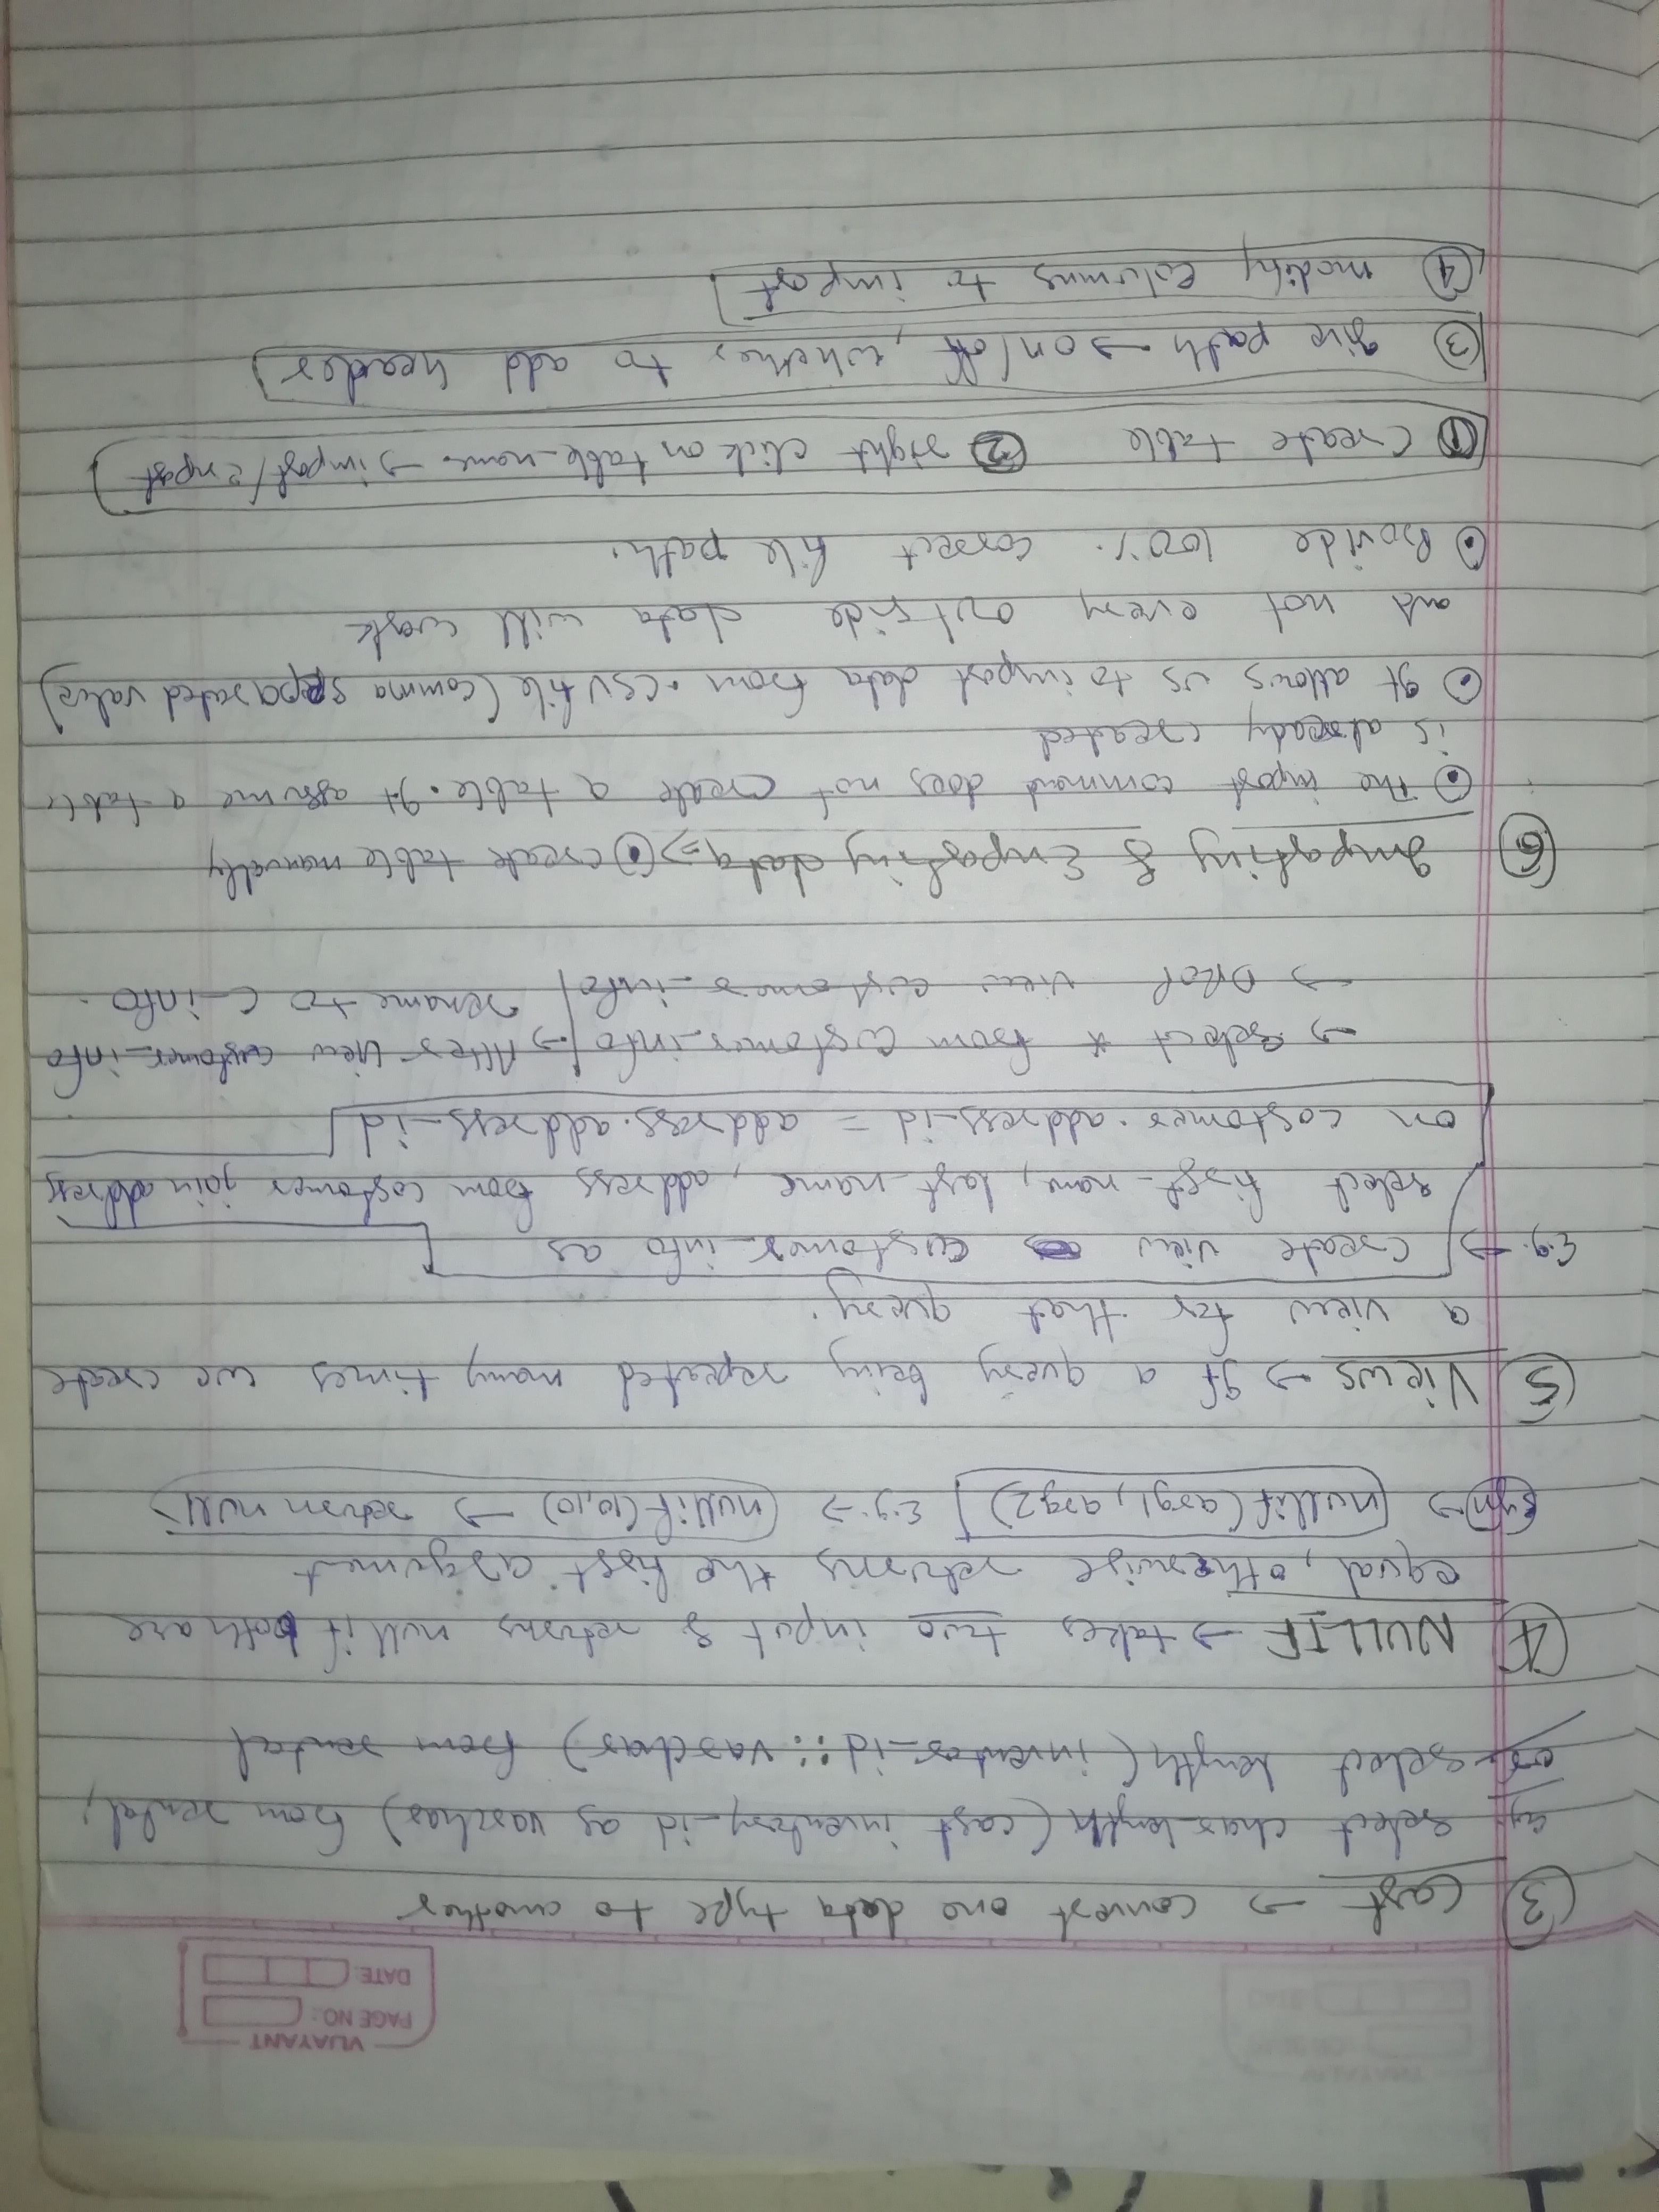 VIJAYANT
PAGE NO.:
DATE:
③ Cast → convert one data type to another
eg: select char_length(cast inventory_id as varchar) from rental;
or select length(inventor_id::varchar) from rental
④ NULLIF → takes two input & returns null if both are
equal, otherwise returns the first argument
Syn → nullif(arg1, arg2) E.g. → nullif(10,10) → return null
⑤ Views → If a query being repeated many times we create
a view for that query.
E.g. → create view customer_info as
select first_name, last_name, address from costomer join address
on costomer.address_id = address.address_id
→ select * from customer_info → Alter view customer_info
→ DROP view customer_info rename to c_info.
⑥ Importing & Exporting data ⇒ ⊙ create table manually
⊙ The import command does not create a table. It assume a table
is already created
⊙ It allows us to import data from .csv file (comma separated value)
and not every outside data will work
⊙ Provide 100% correct file path.
① Create table ② right click on table_name → import/export
③ give path → on/off, whether to add header
④ modify columns to import